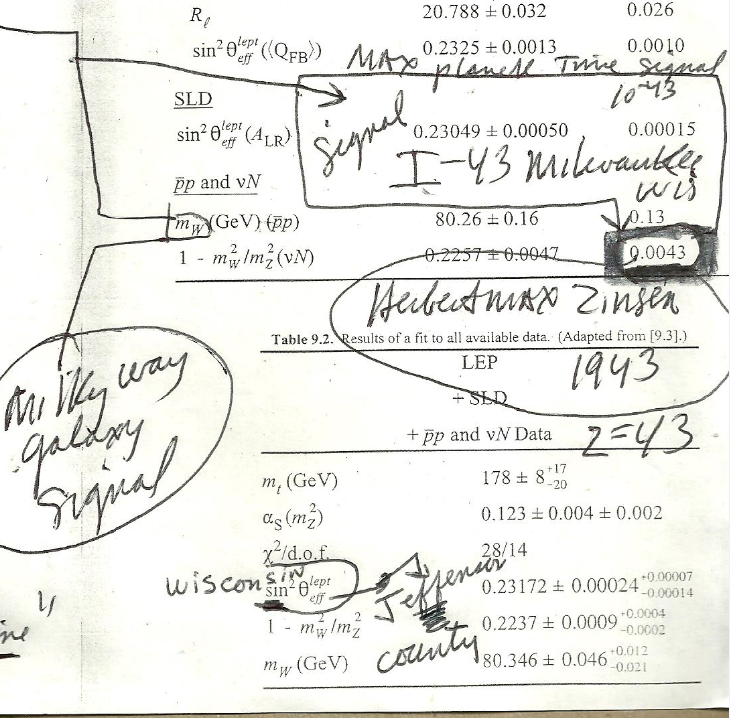 Rℓ 20.788 ± 0.032 0.026
sin²θ_eff^lept (⟨Q_FB⟩) 0.2325 ± 0.0013 0.0010
MAX planck Time signal
10-43
SLD
signal
sin²θ_eff^lept (A_LR) 0.23049 ± 0.00050 0.00015
I-43 Milwaukee
Wis
p̄p and νN
m_W (GeV) (p̄p) 80.26 ± 0.16 0.13
1 - m_W²/m_Z² (νN) 0.2257 ± 0.0047 0.0043
Herbert MAX Zinsen
Table 9.2. Results of a fit to all available data. (Adapted from [9.3].)
LEP
1943
+ SLD
+ p̄p and νN Data
Z=43
Milky way
galaxy
signal
m_t (GeV) 178 ± 8 +17 −20
α_S (m_Z²) 0.123 ± 0.004 ± 0.002
χ²/d.o.f. 28/14
WISCONSIN
sin²θ_eff^lept 0.23172 ± 0.00024 +0.00007 −0.00014
Jefferson
1 - m_W²/m_Z² 0.2237 ± 0.0009 +0.0004 −0.0002
county
m_W (GeV) 80.346 ± 0.046 +0.012 −0.021